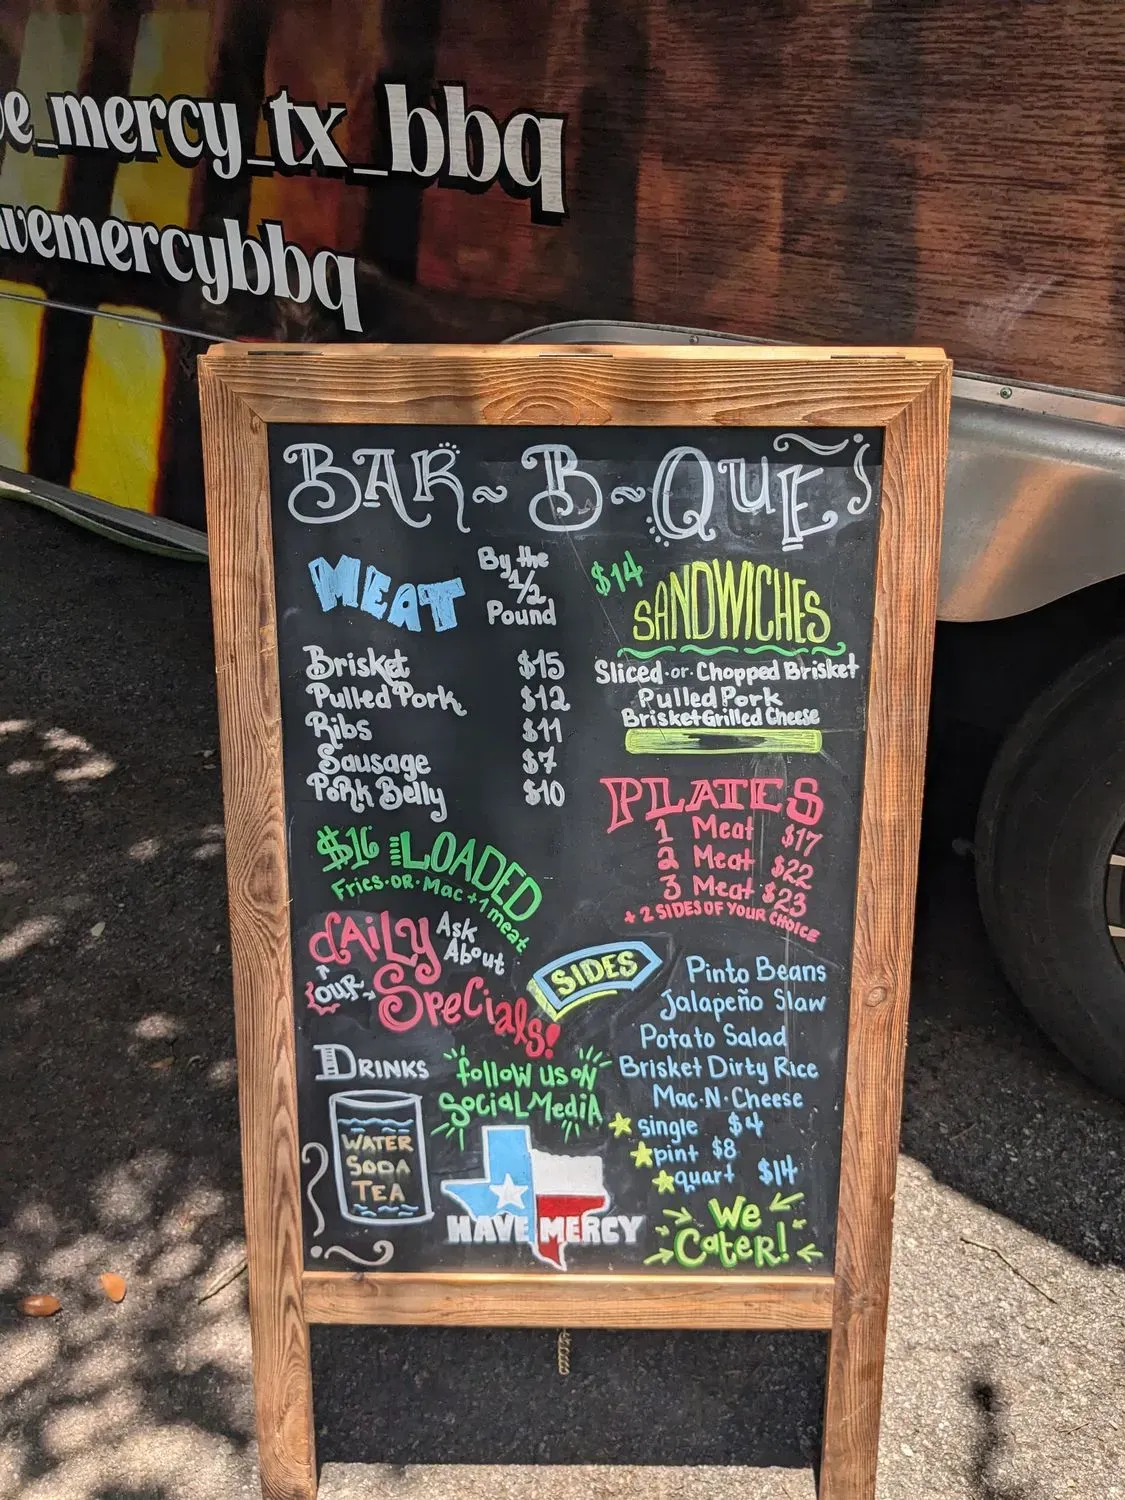 e_mercy_tx_bbq
vemercybbq
BAR~B~QUE
MEAT
By the
1/2
Pound
Brisket $15
Pulled Pork $12
Ribs $11
Sausage $7
Pork Belly $10
$16 LOADED
Fries·OR·Mac + 1 meat
Ask
About
OUR
DAILY
Specials!
DRINKS
WATER
SODA
TEA
follow us on
Social Media
HAVE MERCY
$14
SANDWICHES
Sliced·or·Chopped Brisket
Pulled Pork
Brisket Grilled Cheese
PLATES
1 Meat $17
2 Meat $22
3 Meat $23
+ 2 SIDES OF YOUR CHOICE
SIDES
Pinto Beans
Jalapeño Slaw
Potato Salad
Brisket Dirty Rice
Mac·N·Cheese
single $4
pint $8
quart $14
We
Cater!